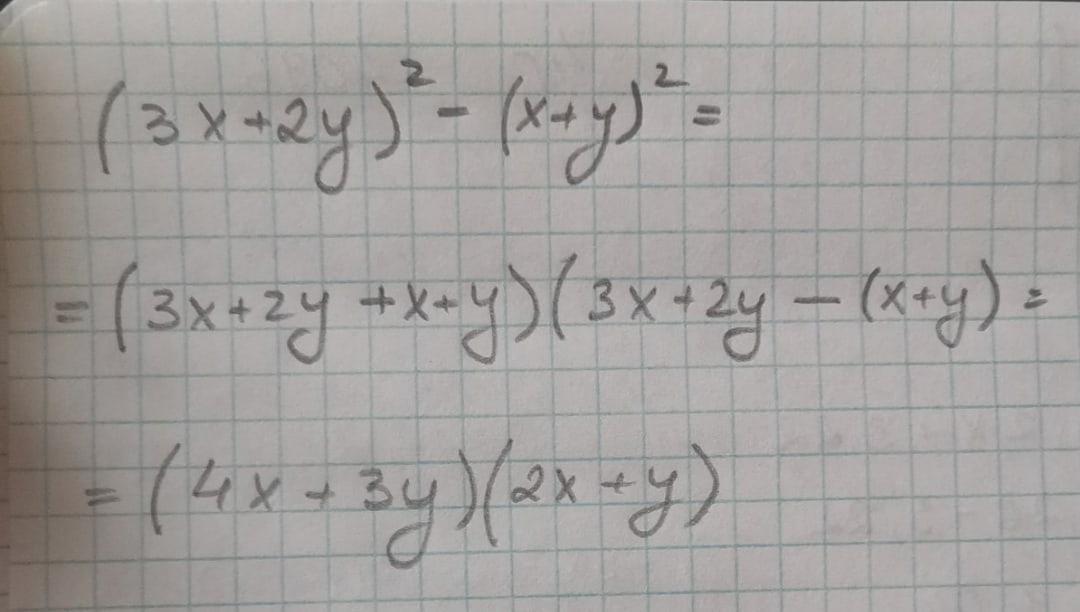 (3x+2y)² - (x+y)² =
= (3x+2y +x+y)(3x+2y - (x+y) =
= (4x + 3y)(2x + y)